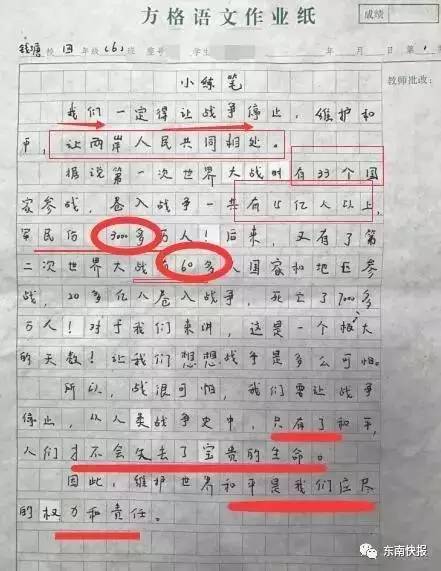 方格语文作业纸
成绩
钱塘校四年级(6)班 座号 学生 年 月 日 第1
教师批改:
小练笔
我们一定得让战争停止,维护和
平,让两岸人民共同相处。
据说第一次世界大战时有33个国
家参战,卷入战争一共有15亿人以上,
军民伤3000多万人!后来,又有了第
二次世界大战有60多个国家和地区参
战,20多亿人卷入战争,死亡了7000多
万人!对于我们来讲,这是一个极大
的天数!让我们想想战争是多么可怕。
所以,战很可怕,我们要让战争
停止,从人类战争史中,只有了和平,
人们才不会失去了宝贵的生命。
因此,维护世界和平是我们应尽
的权力和责任。
东南快报